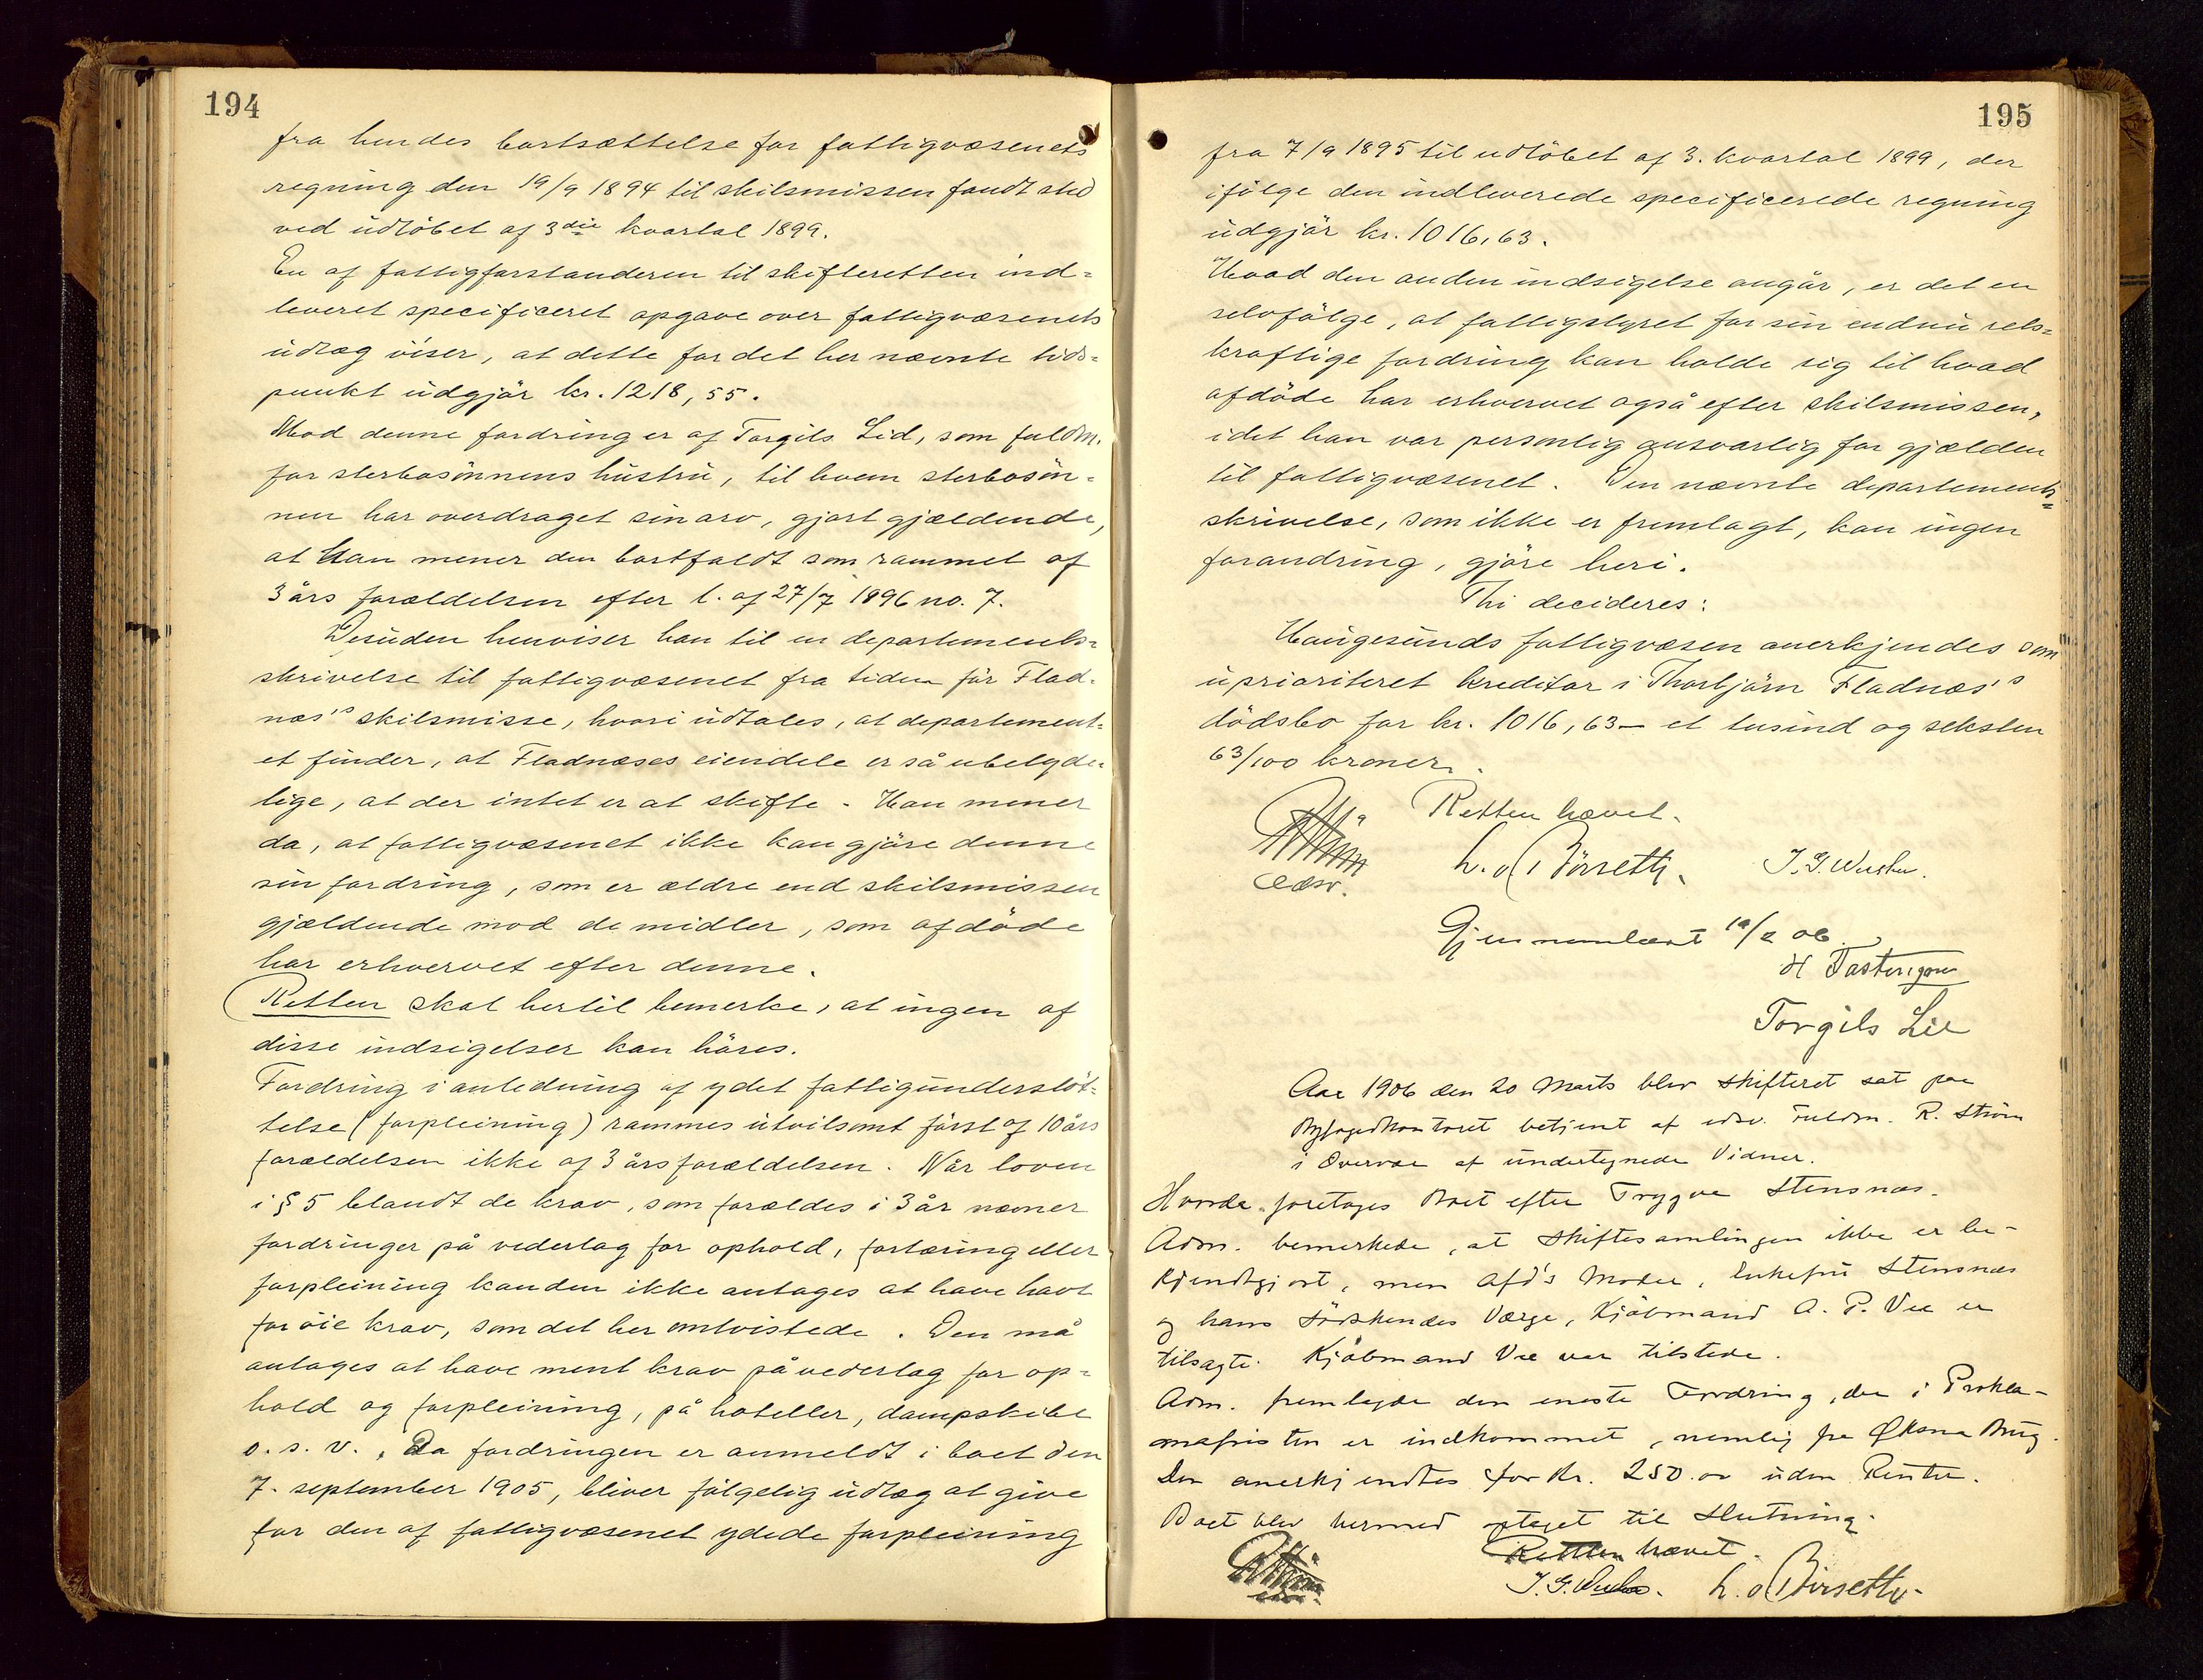 194
fra hendes bortsættelse for fattigvæsenets
regning den 19/9 1894 til skilsmissen fandt sted
ved udløbet af 3die kvartal 1899.
En af fattigforstanderen til skifteretten ind=
leveret specificeret opgave over fattigvæsenets
udlæg viser, at dette for det her nævnte tids=
punkt udgjør kr. 1218,55.
Mod denne fordring er af Torgils Lid, som fuldm.
for sterbosønnens hustru, til hvem sterbosøn=
nen har overdraget sin arv, gjort gjældende,
at han mener den bortfaldt som rammet af
3 års forældelsen efter l. af 27/7 1896 no. 7.
Desuden henviser han til en departements=
skrivelse til fattigvæsenet fra tiden før Flad=
næs's skilsmisse, hvori udtales, at departement=
et finder, at Fladnæses eiendele er så ubetyde=
lige, at der intet er at skifte. Han mener
da, at fattigvæsenet ikke kan gjøre denne
sin fordring, som er ældre end skilsmissen
gjældende mod de midler, som afdøde
har erhvervet efter denne.
Retten skal hertil bemerke, at ingen af
disse indsigelser kan høres.
Fordring i anledning af ydet fattigunderstøt=
telse (forpleining) rammes utvilsomt først af 10 års
forældelsen ikke af 3 års forældelsen. Når loven
i § 5 blandt de krav, som forældes i 3 år nævner
fordringer på vederlag for ophold, fortæring eller
forpleining kan den ikke antages at have havt
for øie krav, som det her omtvistede. Den må
antages at have ment krav på vederlag for op=
hold og forpleining, på hoteller, dampskibe
o. s. v.. Da fordringen er anmeldt i boet den
7. september 1905, bliver følgelig udlæg at give
for den af fattigvæsenet ydede forpleining
195
fra 7/9 1895 til udløbet af 3. kvartal 1899, der
ifølge den indleverede specificerede regning
udgjør kr. 1016,63.
Hvad den anden indsigelse angår, er det en
selvfølge, at fattigstyret for sin endnu rets=
kraftige fordring kan holde sig til hvad
afdøde har erhvervet også efter skilsmissen,
idet han var personlig ansvarlig for gjælden
til fattigvæsenet. Den nævnte departements=
skrivelse, som ikke er fremlagt, kan ingen
forandring, gjøre heri.
Thi decideres:
Haugesunds fattigvæsen anerkjendes som
uprioriteret kreditor i Thorbjørn Fladnæs's
dødsbo for kr. 1016,63 – et tusind og seksten
63/100 kroner.
Retten hævet.
edsv.
L. o. Børseth. J. G.
Gjennemlæst 19/2 06
Torgils Lid
Aar 1906 den 20 Marts blev skifteret sat paa
Byfogedkontoret betjent af edsv. Fuldm. R. Strøm
i Overvær af undertegnede Vidner.
Hvorda foretoges Boet efter Trygve Stensnæs.
Adm. bemerkede, at Skiftesamlingen ikke er be-
kjendtgjort, men Afd's Moder, Enkefru Stensnæs
og hans Sødskendes Værge, Kjøbmand A. P. Vee er
tilsagte. Kjøbmand Vee var tilstede.
Adm. fremlagde den eneste Fordring, der i Prokla-
mafristen er indkommet, nemlig fra
Den anerkjendtes for Kr. 250.00 uden Renter.
Boet blev hermed optaget til Slutning.
Retten hævet.
J. G. L. o. Børseth